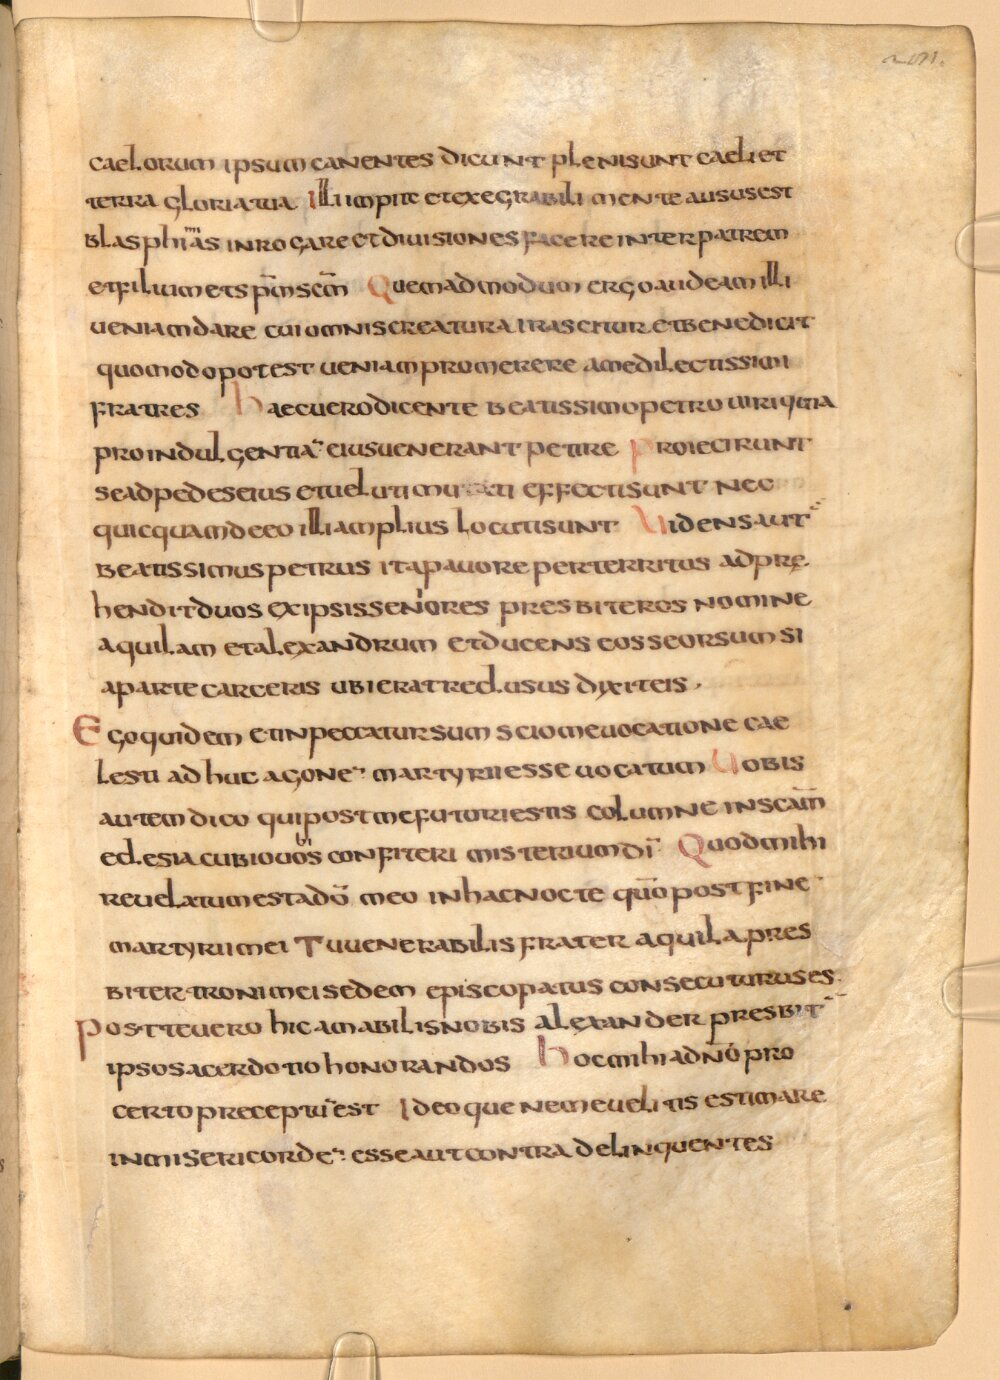 caelorum ipsum canentes dicunt pleni sunt caeli et
terra gloria tua. Ille impie et exegrabili mente ausus est
blasphimas inrogare et diuisiones facere inter patrem
et filium et spm scm Quemadmodum ergo audeam illi
ueniam dare cui omnis creatura irascitur et benedicit
quomodo potest ueniam promerere a me dilectissimi
fratres haec uero dicente beatissimo petro uiri qui a
pro indulgentia eius uenerant petire proiecirunt
se ad pedes eius et uelut muti effecti sunt nec
quicquam de eo illi amplius locuti sunt Uidens aut
beatissimus petrus ita pauore perterritus adpre
hendit duos ex ipsis seniores presbiteros nomine
aquilam et alexandrum et ducens eos seorsum si
a parte carceris ubi erat reclusus dixit eis,
Ego quidem et in peccatur sum scio me uocatione cae
lesti ad huc agone martyrii esse uocatum Uobis
autem dico qui post me futori estis columne in scam
eclesia cubio uobis confiteri misterium di Quod mihi
reuelatum est a dno meo in hac nocte qmo post fine
martyrii mei Tu uenerabilis frater aquila pres
biter troni mei sedem episcopatus consecuturus es.
post te uero hic amabilis nobis alexander presbit
ipso sacerdotio honorandos hoc mihi a dno pro
certo preceptu est Ideoque ne me uelitis estimare
inmisericorde esse aut contra delinquentes